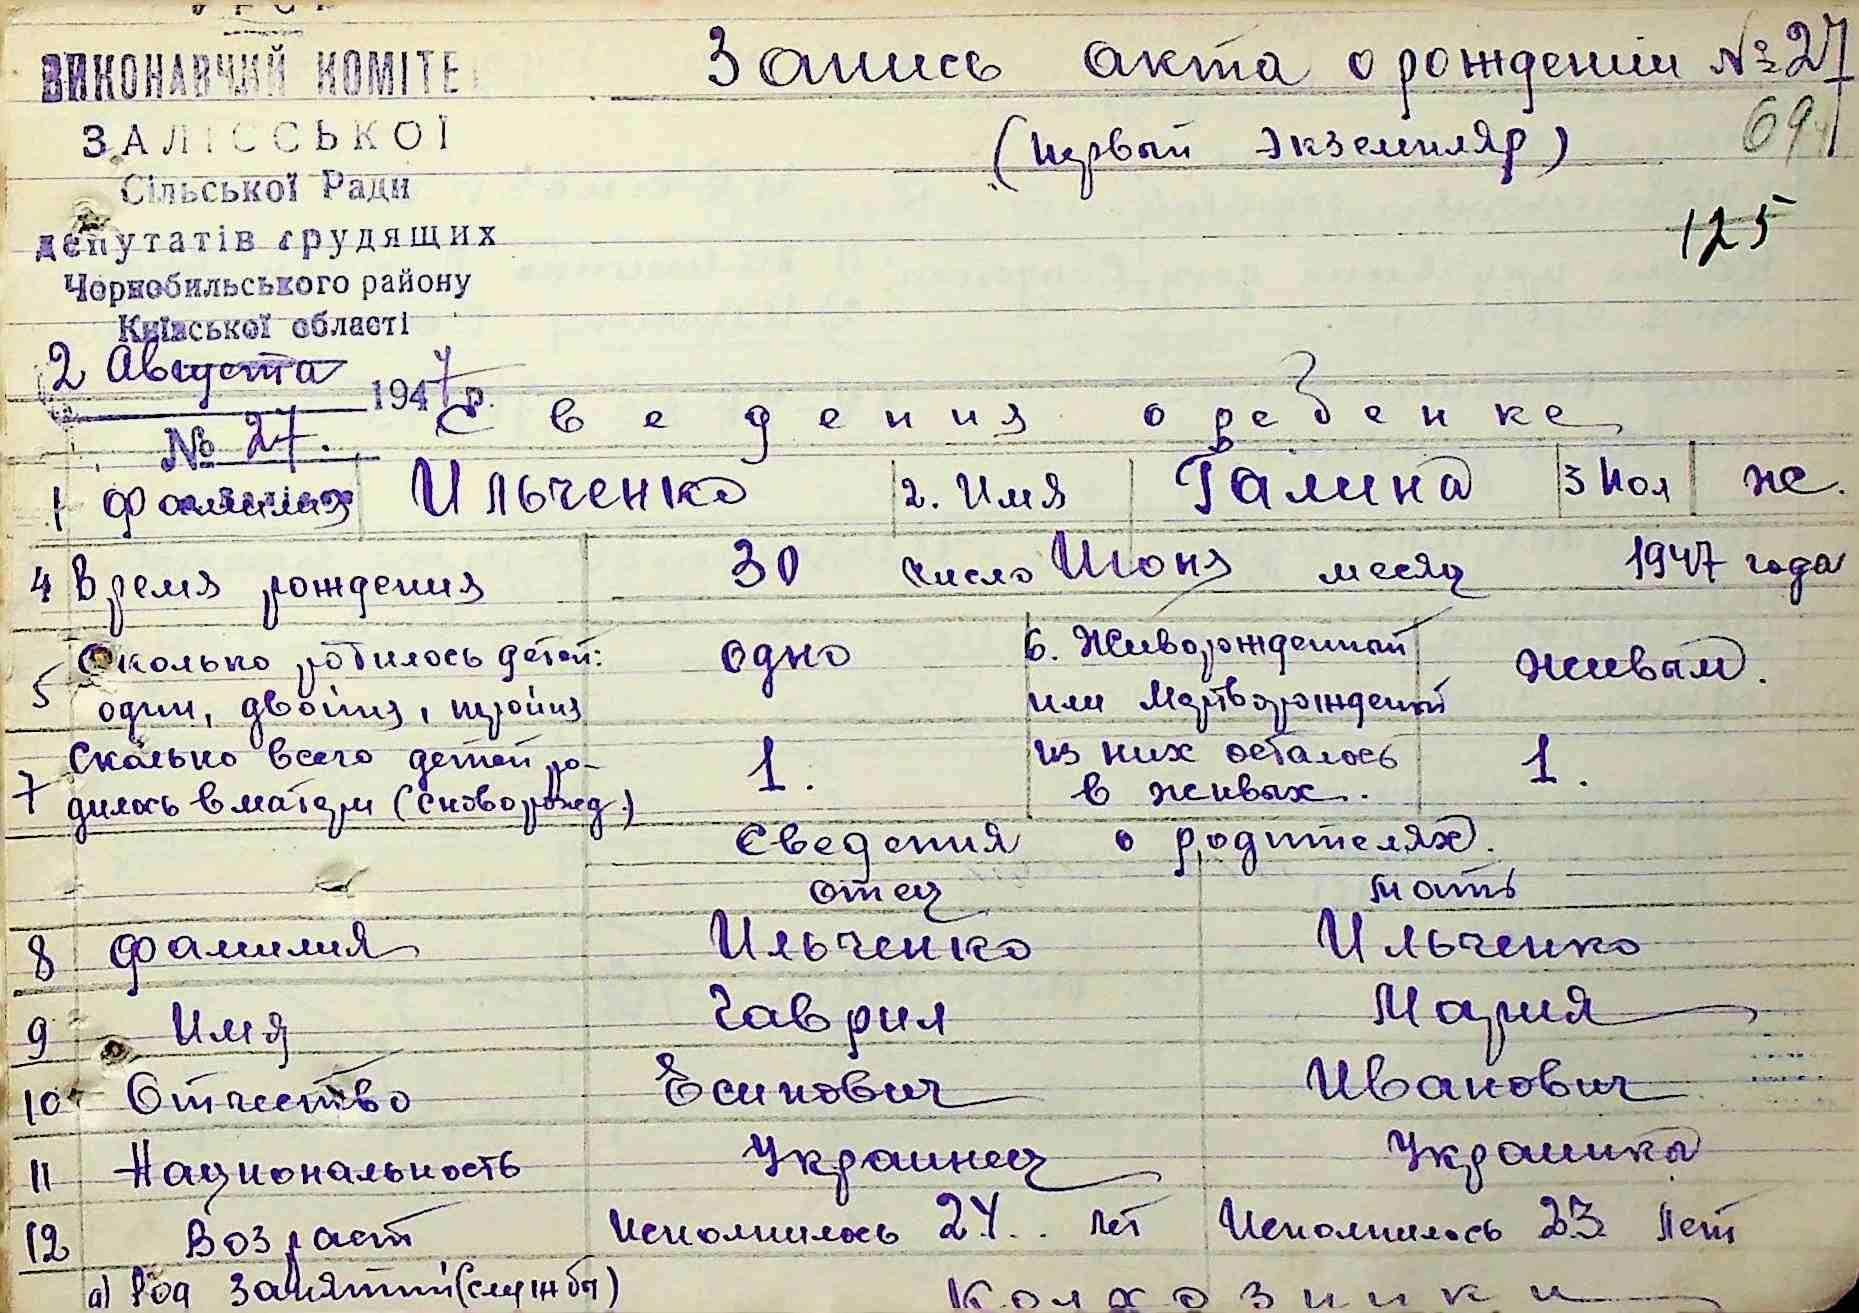 УРСР
ВИКОНАВЧИЙ КОМІТЕ
ЗАЛІССЬКОЇ
Сільської Ради
депутатів трудящих
Чорнобильського району
Київської області
2 Августа 1947 р.
№ 27.
Запись акта о рождении № 27
69
(первый экземпляр)
125
Сведения о ребенке
1 Фамилия Ильченко 2. Имя Галина 3 Пол ж.
4 Время рождения 30 число Июня месяц 1947 года
5 Сколько родилось детей: одно 6. Живорожденный живым.
один, двойня, тройня или Мертворожденный
7 Сколько всего детей ро- 1. из них осталось 1.
дилось в матери ( ) в живых.
Сведения о родителях.
отец мать
8 Фамилия Ильченко Ильченко
9 Имя Гаврил Мария
10 Отчество Есипович Иванович
11 Национальность Украинец Украинка
12 Возраст Исполнилось 24.. лет Исполнилось 23 лет
а) Род занятий (службы) Колхозники